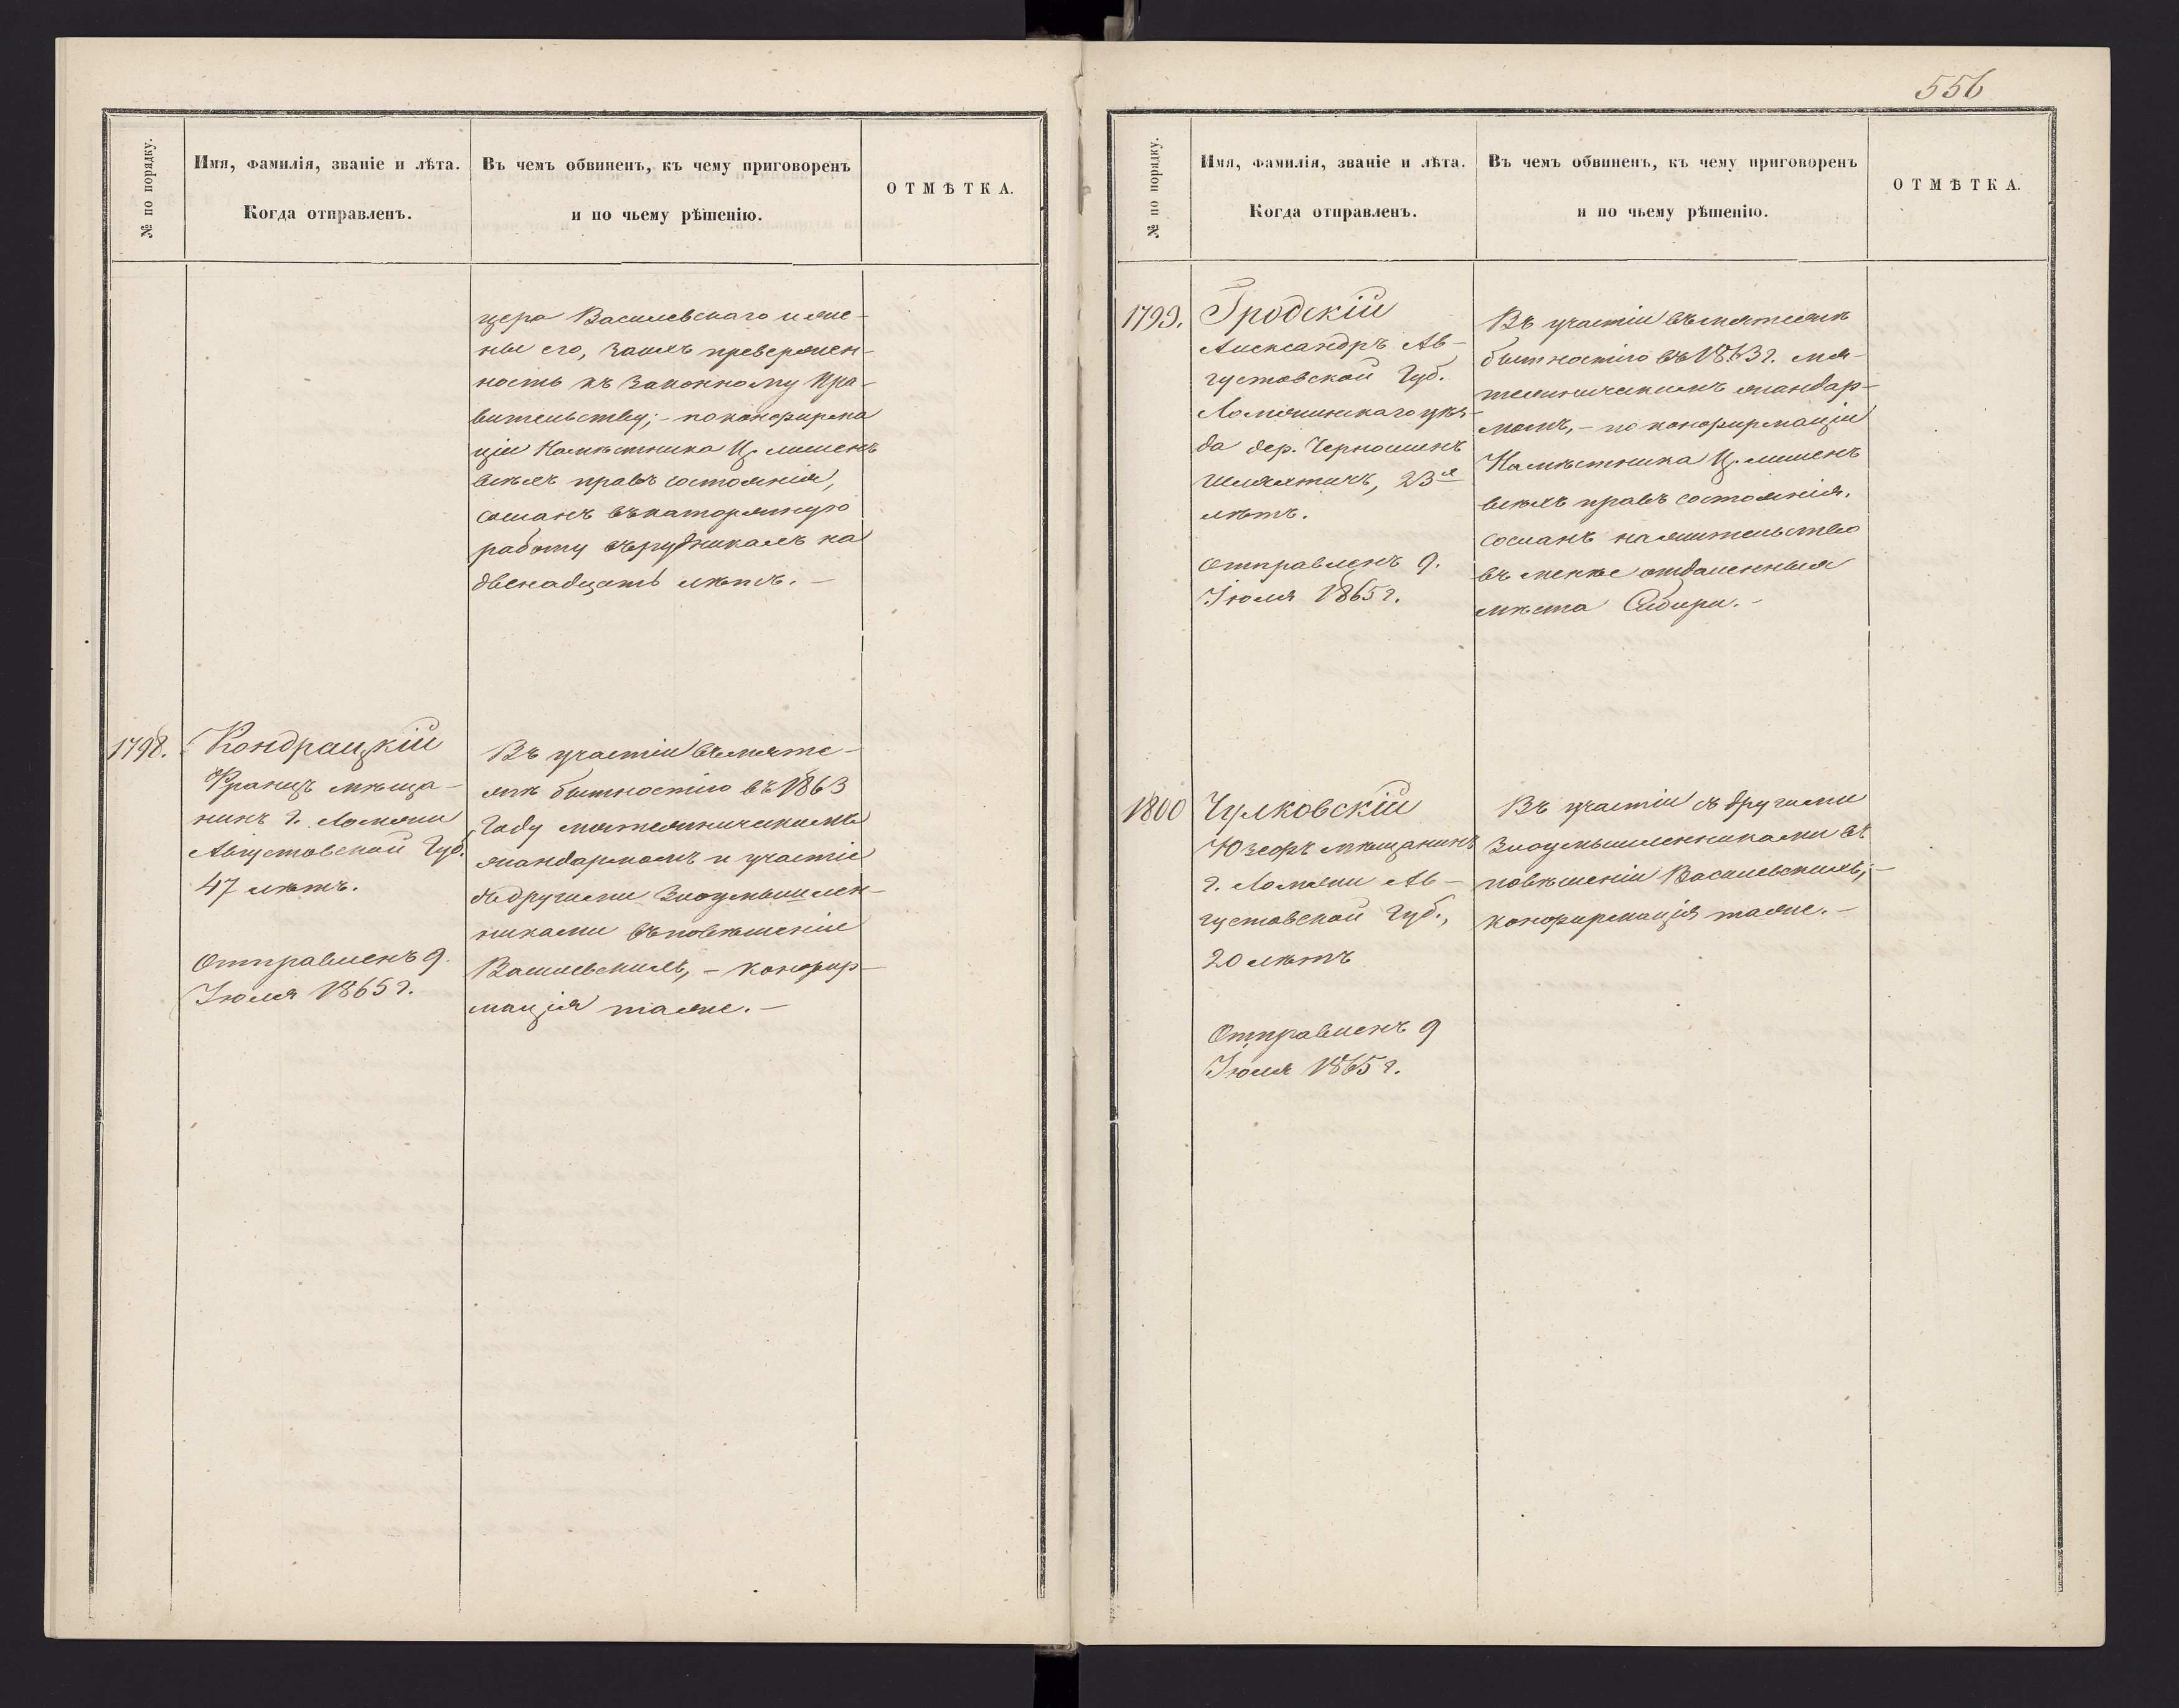 № по порядку.
Имя, фамилія, званіе и лѣта.
Когда отправленъ.
Въ чемъ обвиненъ, къ чему приговоренъ
и по чьему рѣшенію.
ОТМѢТКА.
цера Василевскаго и же-
ны его, за ихъ привержен-
ность къ законному Пра-
вительству; - по конфирма
ціи Намѣстника Ц. лишенъ
всѣхъ правъ состоянія,
сосланъ въ каторжную
работу въ рудникахъ на
двенадцать лѣтъ. -
1798.
Кондрацкій
Францъ мѣща-
нинъ г. Ломжи
Августовской Губ.
47 лѣтъ.
Отправленъ 9.
Іюля 1865 г.
Въ участіи въ мяте-
жѣ бытностію въ 1863
году мятежническимъ
жандармомъ и участіе
съ другими злоумышлен-
никами въ повѣшеніи
Василевскихъ, - конфир-
мація таже. -
556
№ по порядку.
Имя, фамилія, званіе и лѣта.
Когда отправленъ.
Въ чемъ обвиненъ, къ чему приговоренъ
и по чьему рѣшенію.
ОТМѢТКА.
1799.
Гродскій
Александръ Ав-
густовской Губ.
Ломжинскаго уѣз-
да дер.
шляхтичъ, 23-х
лѣтъ.
Отправленъ 9.
Іюля 1865 г.
Въ участіи въ мятежѣ
бытностію въ 1863 г. мя-
тежническимъ жандар-
момъ, - по конфирмаціи
Намѣстника Ц. лишенъ
всѣхъ правъ состоянія.
сосланъ на жительство
въ менѣе отдаленныя
мѣста Сибири. -
1800
Чулковскій
Юзефъ мѣщанинъ
г. Ломжи Ав-
густовской Губ.,
20 лѣтъ
Отправленъ 9
Іюля 1865 г.
Въ участіи съ другими
злоумышленниками въ
повѣшеніи Василевскихъ; -
конфирмація таже. -